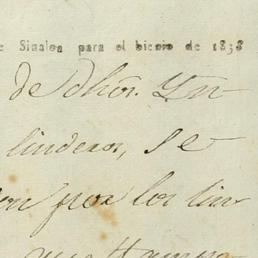 e Sinaloa para el bienio de 1838
de dho͞r. Yn
linderos, se
por los lin